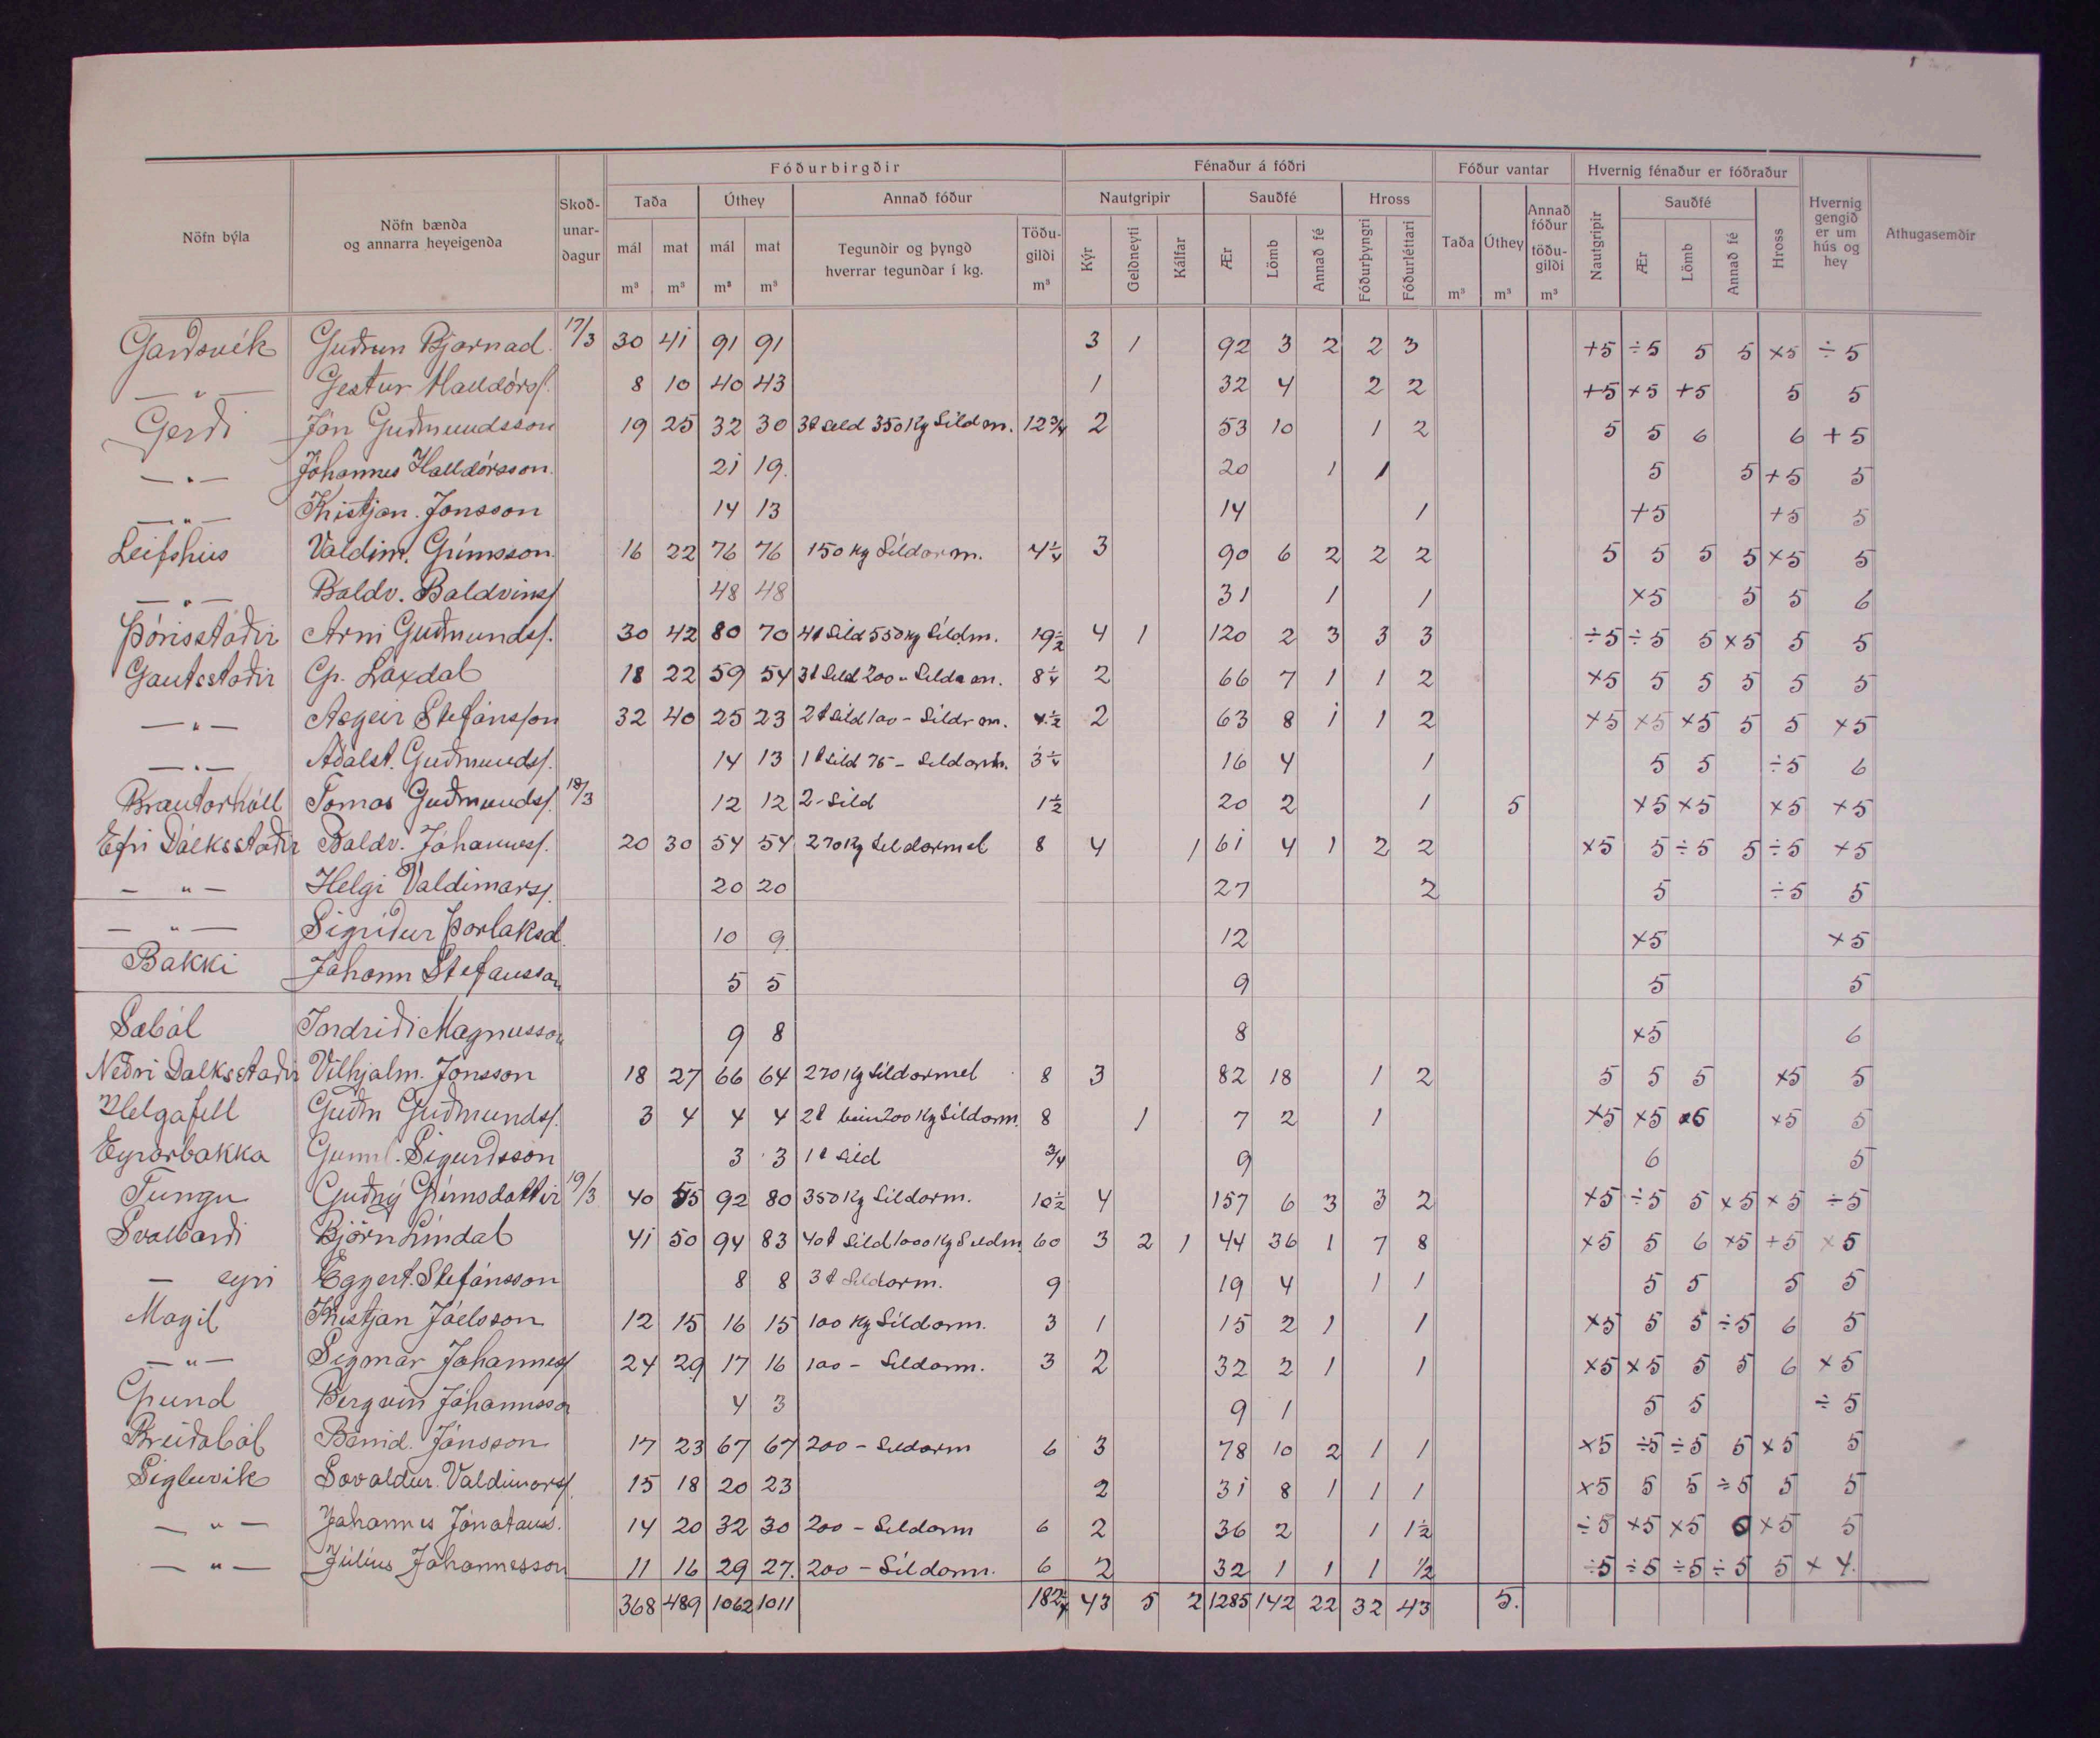 Fóðurbirgðir Fénaður á fóðri Fóður vantar Hvernig fénaður er fóðraður
Nöfn býla Nöfn bænda og annarra heyeigenda Skoðunardagur Taða Úthey Annað fóður Nautgripir Sauðfé Hross Taða Úthey Annað fóður töðugildi Nautgripir Sauðfé Hross Hvernig gengið er um hús og hey Athugasemdir
mál mat mál mat Tegundir og þyngd hverrar tegundar í kg. Töðugildi Kýr Geldneyti Kálfar Ær Lömb Annað fé Fóðurþyngri Fóðurléttari Ær Lömb Annað fé
m³ m³ m³ m³ m³ m³ m³ m³
Garðsvík Guðrun Bjarnad. 17/3 30 41 91 91 3 1 92 3 2 2 3 +5 ÷5 5 5 ×5 ÷5
— „ — Gestur Halldórss. 8 10 40 43 1 32 4 2 2 +5 ×5 +5 5 5
Gerði Jón Guðmundsson 19 25 32 30 3t síld 350 Kg Síldm. 12¾ 2 53 10 1 2 5 5 6 6 +5
— „ — Jóhannes Halldórsson. 21 19. 20 1 1 5 5 +5 5
— „ — Kristjan. Jónsson 14 13 14 1 +5 +5 5
Leifshús Valdim. Grímsson 16 22 76 76 150 kg Síldarm. 4¼ 3 90 6 2 2 2 5 5 5 5 ×5 5
— „ — Baldv. Baldvinss 48 48 31 1 1 ×5 5 5 6
Þórisstaðir Arni Guðmundss. 30 42 80 70 4t Síld 550 kg Síldm. 19½ 4 1 120 2 3 3 3 ÷5 ÷5 5 ×5 5 5
Gautsstaðir Gr. Laxdal 18 22 59 54 3t Síld 200 „ Síldam. 8¼ 2 66 7 1 1 2 ×5 5 5 5 5 5
— „ — Asgeir Stefánsson 32 40 25 23 2t Síld 100 - Síldarm. 4½ 2 63 8 1 1 2 ×5 ×5 ×5 5 5 ×5
— „ — Aðalst. Guðmundss. 14 13 1t Síld 75 - Síldarm. 3¼ 16 4 1 5 5 ÷5 6
Brautarhóll Tomas Guðmundss. 18/3 12 12 2 - Síld 1½ 20 2 1 5 ×5 ×5 ×5 ×5
Efri Dálksstaðir Baldv. Jóhanness. 20 30 54 54 270 Kg Síldarmel 8 4 1 61 4 1 2 2 ×5 5 ÷5 5 ÷5 ×5
— „ — Helgi Valdimarss. 20 20 27 2 5 ÷5 5
— „ — Sigríður Þorlaksd. 10 9. 12 ×5 ×5
Bakki Jóhann Stefansson 5 5 9 5 5
Sæból Indriði Magnusson 9 8 8 ×5 6
Neðri Dalksstaðir Vilhjalm. Jónsson 18 27 66 64 270 Kg Síldarmel 8 3 82 18 1 2 5 5 5 ×5 5
Helgafell Guðm Guðmundss. 3 4 4 4 2t bein 200 Kg Síldarm. 8 1 7 2 1 ×5 ×5 ×5 ×5 5
Eyrarbakka Gunnl. Sigurdsson 3 3 1t Síld ¾ 9 6 5
Tungu Guðný Grímsdottir 19/3 40 55 92 80 350 Kg Síldarm. 10½ 4 157 6 3 3 2 ×5 ÷5 5 ×5 ×5 ÷5
Svalbarði Björn Líndal 41 50 94 83 40t Síld 1000 Kg Síldm. 60 3 2 1 44 36 1 7 8 ×5 5 6 ×5 +5 ×5
— eyri Eggert. Stefánsson 8 8 3t Síldarm. 9 19 4 1 1 5 5 5 5
Magil Kristjan Jóelsson 12 15 16 15 100 Kg Síldarm. 3 1 15 2 1 1 ×5 5 5 ÷5 6 5
— „ — Sigmar Jóhanness 24 29 17 16 100 - Síldarm. 3 2 32 2 1 1 ×5 ×5 5 5 6 ×5
Grund Bergvin Jóhannsson 4 3 9 1 5 5 ÷5
Breiðaból Benid. Jónsson 17 23 67 67 200 - Síldarm 6 3 78 10 2 1 1 ×5 ÷5 ÷5 5 ×5 5
Sigluvik Sovaldur. Valdimarss. 15 18 20 23 2 31 8 1 1 1 ×5 5 5 ÷5 5 5
— „ — Jóhannes Jónatanss. 14 20 32 30 200 - Síldarm 6 2 36 2 1 1½ ÷5 ×5 ×5 ×5 5
— „ — Júlíus Jóhannesson 11 16 29 27. 200 - Síldarm. 6 2 32 1 1 1 ½ ÷5 ÷5 ÷5 ÷5 5 × 4.
368 489 1062 1011 182¼ 43 5 2 1285 142 22 32 43 5.